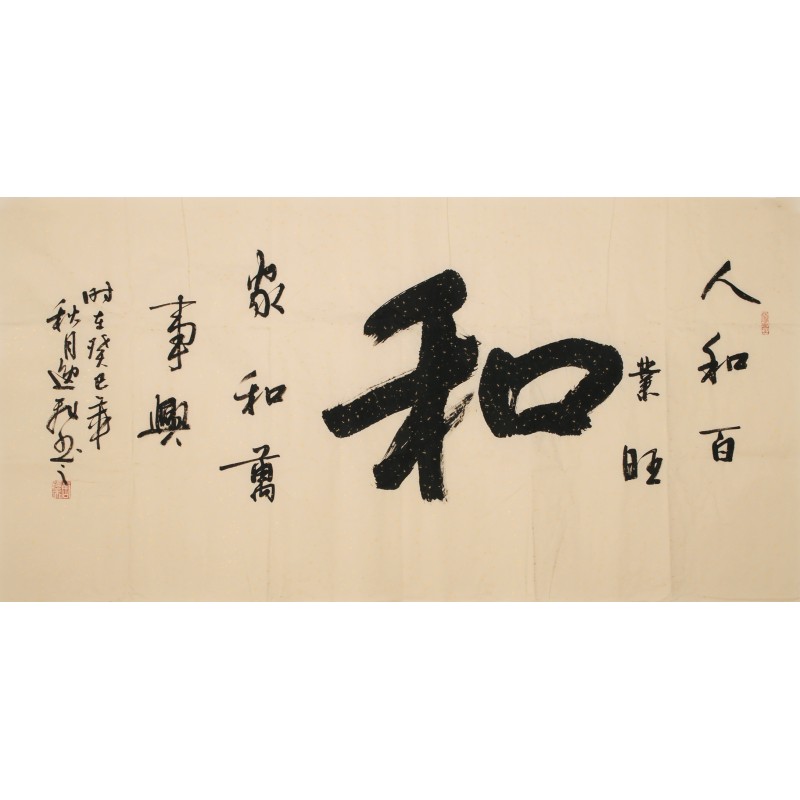 人和百
業旺
和
家和萬
事興
时在癸巳年
秋月逸秋书之